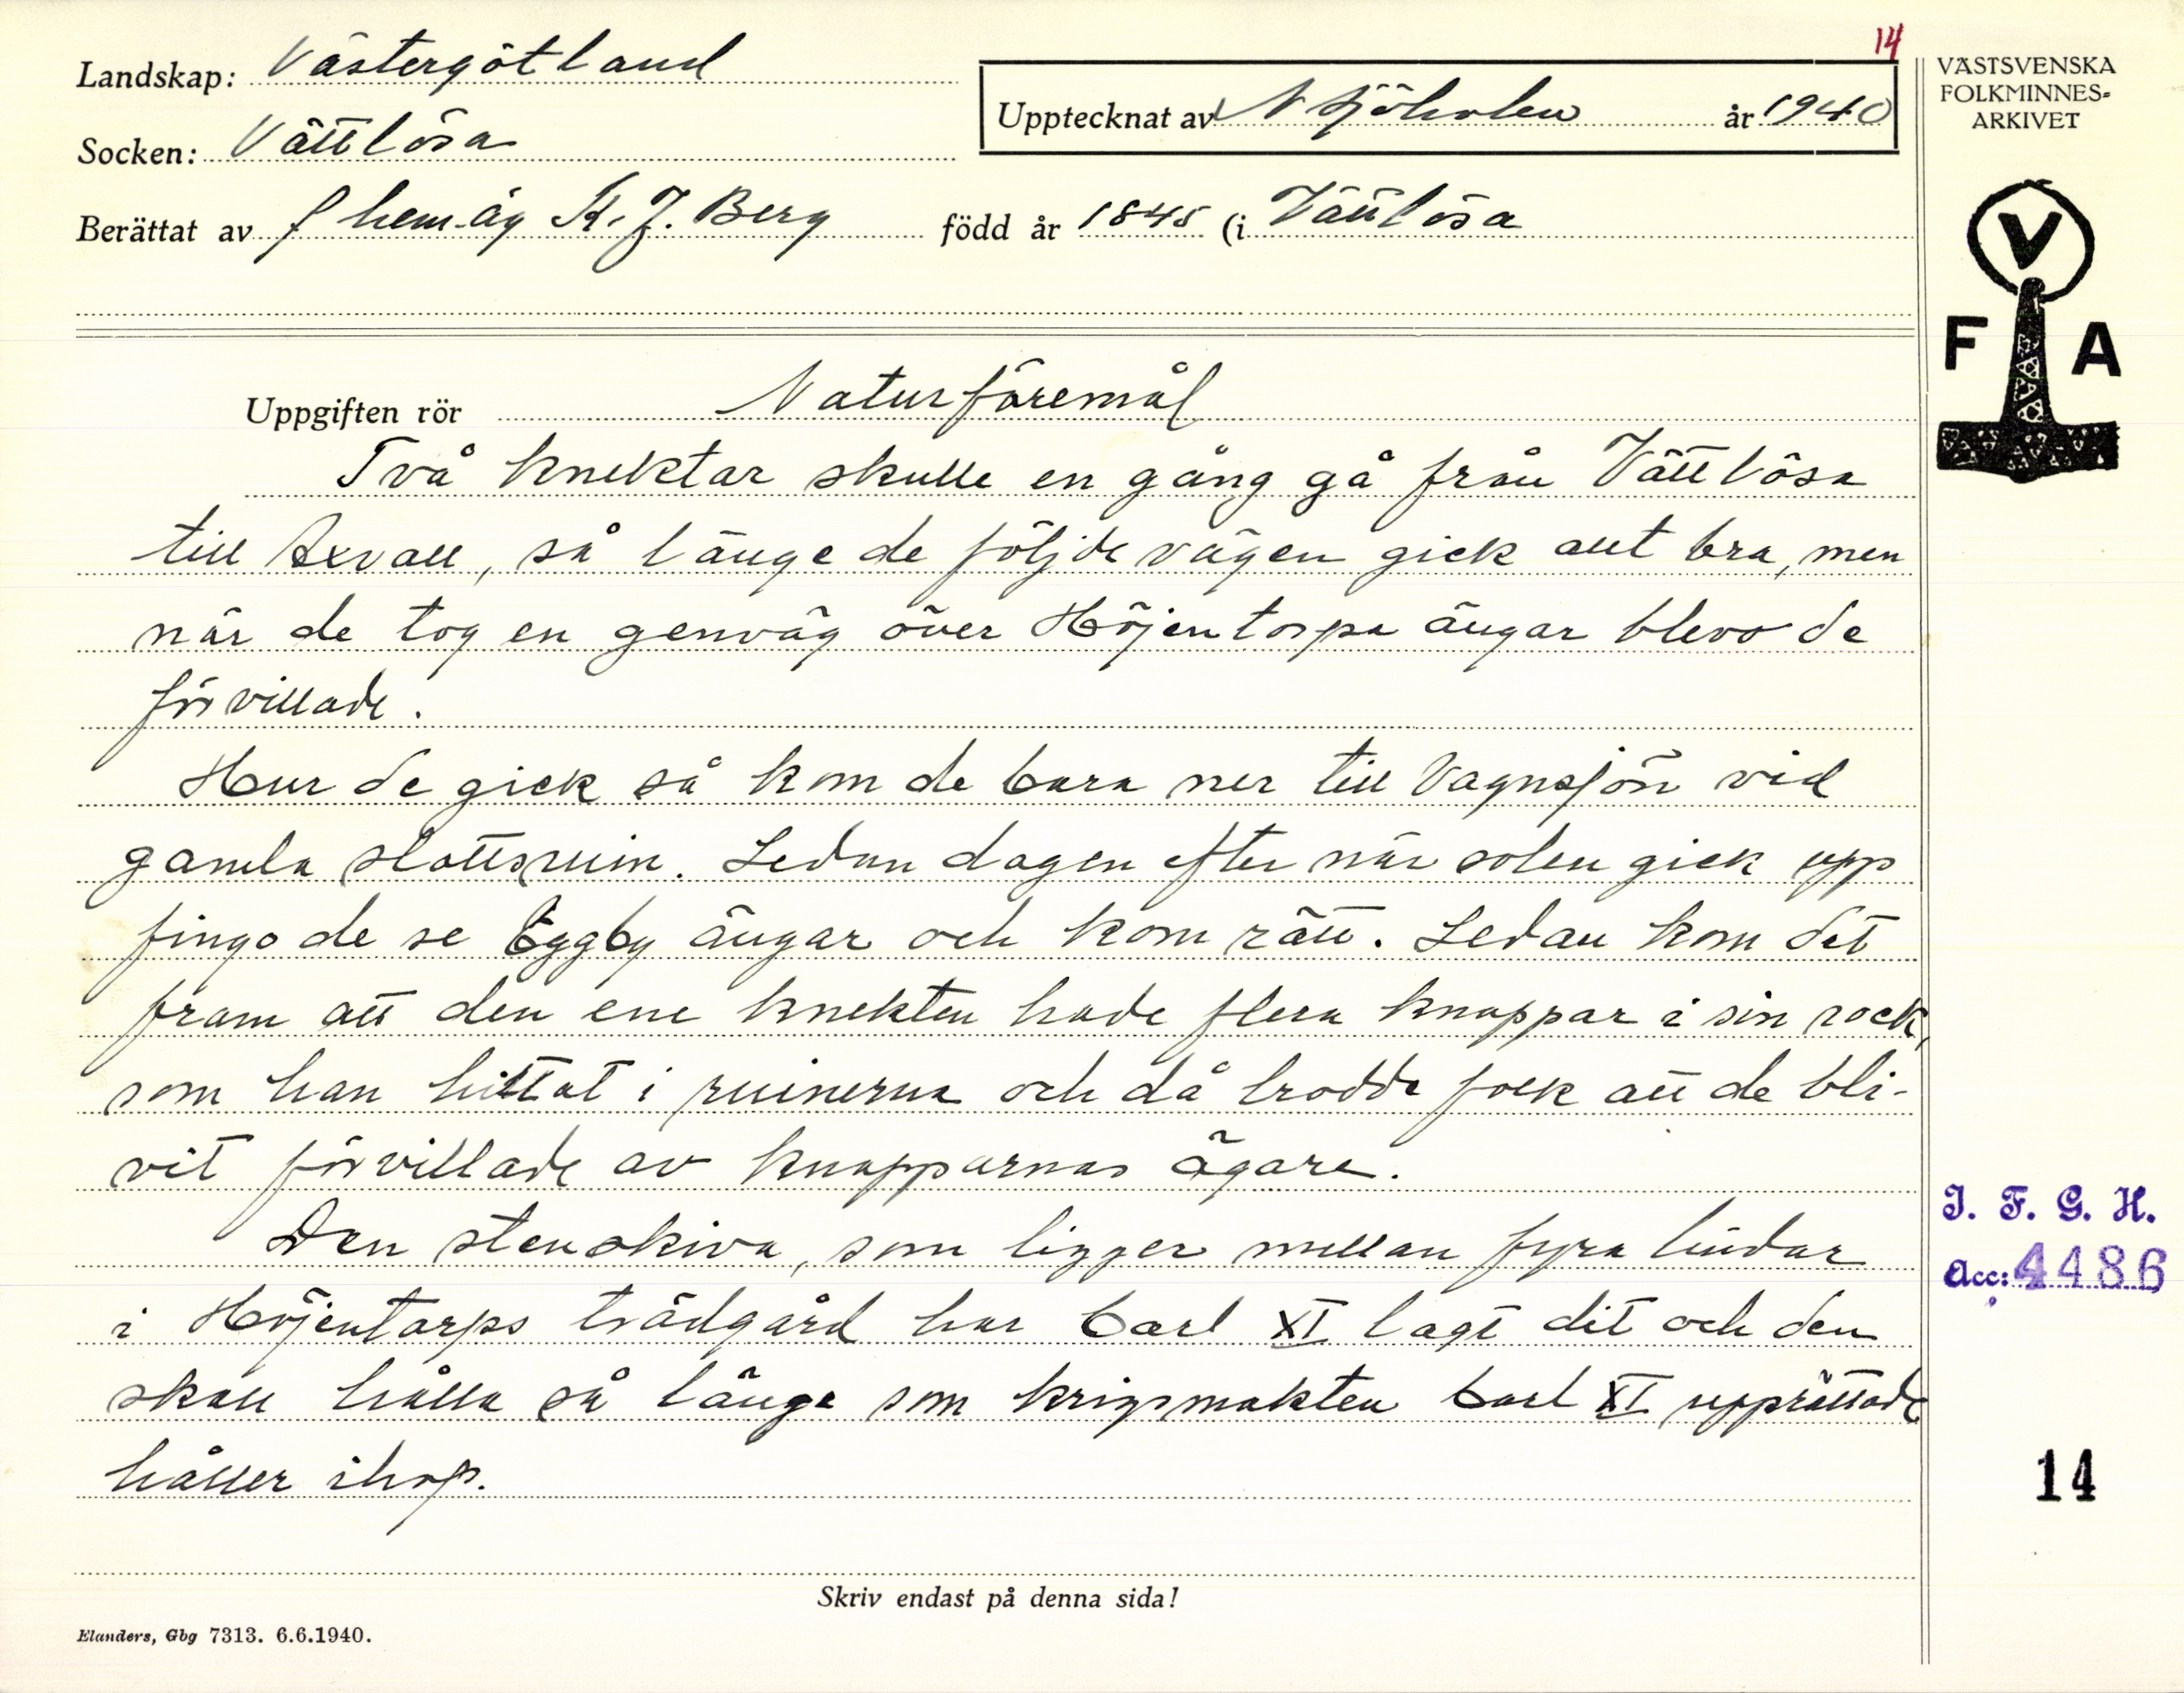 14
Landskap: Västergötland
Socken: Vättlösa
Upptecknat av N Sjöholm år 1940
Berättat av f hem.äg K. J. Berg född år 1845 (i Vättlösa
VÄSTSVENSKA
FOLKMINNES-
ARKIVET
V
F A
Uppgiften rör Naturföremål
Två knektar skulle en gång gå från Vättlösa
till Axvall, så länge de följde vägen gick allt bra, men
när de tog en genväg över Höjentorps ängar blevo de
förvillade.
Hur de gick så kom de bara ner till Vagnsjön vid
gamla slottsruin. Sedan dagen efter när solen gick upp
fingo de se Eggby ängar och kom rätt. Sedan kom det
fram att den ene knekten hade flera knappar i sin rock,
som han hittat i ruinerna och då trodde folk att de bli-
vit förvillade av knapparnas ägare.
Den stenskiva, som ligger mellan fyra lindar
i Höjentorps trädgård har Carl XI lagt dit och den
skall hålla så länge som krigsmakten Carl XI upprättade
håller ihop.
I. F. G. H.
Acc: 4486
14
Skriv endast på denna sida!
Elanders, Gbg 7313. 6.6.1940.